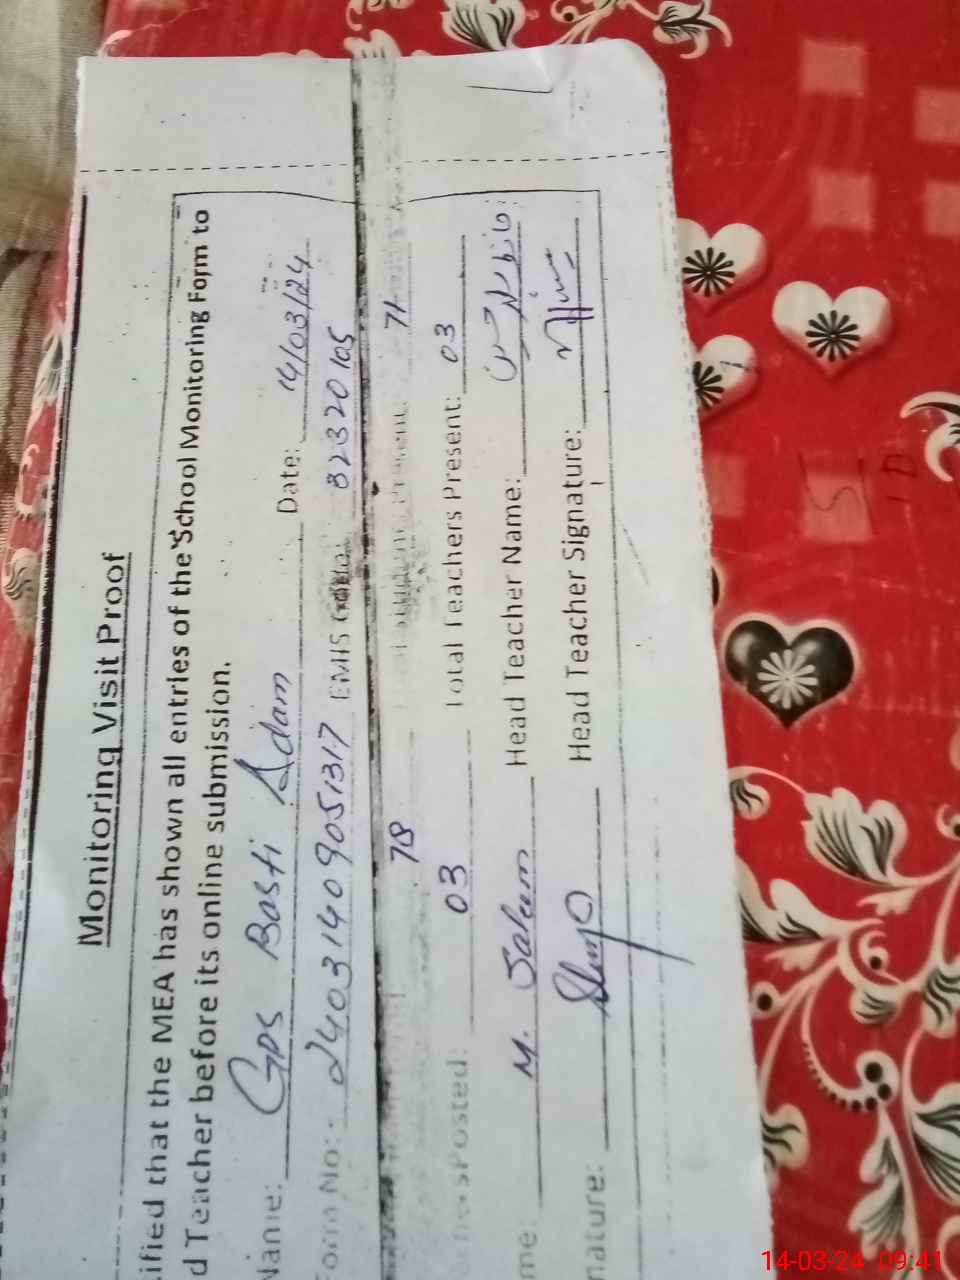 Monitoring Visit Proof
ified that the MEA has shown all entries of the School Monitoring Form to
d Teacher before its online submission.
Name: GPS Basti Adam Date: 14/03/24
Form No: 24031409051317 EMIS 32320105
78 Present: 71
Posted: 03 Total Teachers Present: 03
me: M. Saleem Head Teacher Name:
nature: Head Teacher Signature:
14-03-24 09:41